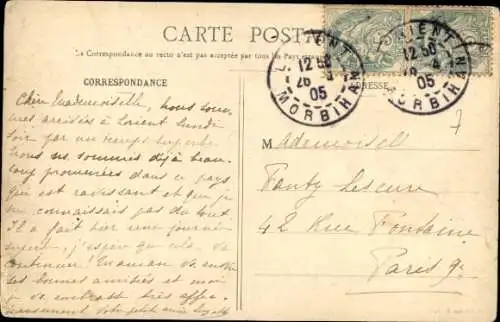 CARTE POSTALE
La Correspondance au recto n'est pas acceptée par tous les Pays
CORRESPONDANCE
ADRESSE
LORIENT
12 50
26 4
05
MORBIHAN
LORIENT
12 50
4
05
MORBIHAN
7
Chère Mademoiselle, nous som-
mes arrivées à Lorient lundi
soir par un temps superbe
Nous ns. sommes déjà beau-
coup promenées dans ce pays
qui est ravissant et que je
ne connaissais pas du tout.
Il a fait hier une journée
superbe, j'espère que cela va
continuer! Maman vs. envoie
ses bonnes amitiés et moi
je vs. embrasse très affec-
tueusement Votre petite amie
Mademoiselle
Fanty Lescure
42 Rue Fontaine
Paris 9e